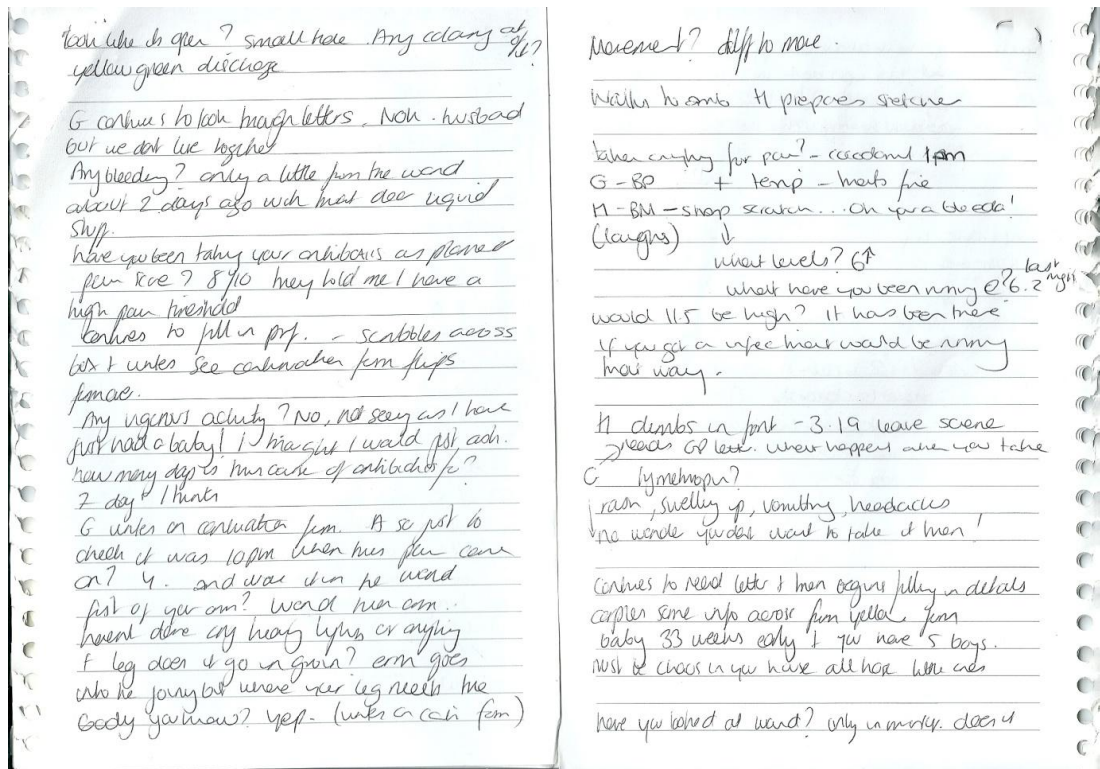 look like its open? small hole. Any coloury at
yellow green discharge all?
G continues to look through letters. NOK. husband
but we dont live together
Any bleeding? only a little from the wound
about 2 days ago with that clear liquid
stuff.
have you been taking your antibiotics as planned
pain score? 8/10 they told me I have a
high pain threshold
continues to fill in prf. - scribbles across
box + writes see continuation form flips
Any vigorous activity? No, not seeing as I have
just had a baby! I thought I would just ach.
how many days is this course of antibiotics for?
7 days I think
G writes on continuation form. A so just to
check it was 10pm when this pain came
on? Y. and was it in the wound
first or your arm? Wound then arm..
havent done any heavy lifting or anything
+ leg does it go in groin? erm goes
into the joining but where your leg meets the
body you know? yep. (writes on con form)
Movement? diff to move.
Walks to amb H prepares stretcher
taken anything for pain? - cocodamol 1pm
G - BP + temp - thats fine
H - BM - sharp scratch... Oh you a bleeder!
(laughs) ↓
what levels? 6↑
what have you been running @? 6.2 last night
would 11.5 be high? it has been there
if you got a infec that would be running
that way.
H climbs in front - 3.19 leave scene
→ reads GP letter. what happens when you take
G
rash, swelling up, vomiting, headaches
no wonder you dont want to take it then!
continues to read letter + then begins filling in details
copies some info across from yellow form
baby 33 weeks early + you have 5 boys.
must be chaos in you house all those little ones
have you looked at wound? only in mirror. does it